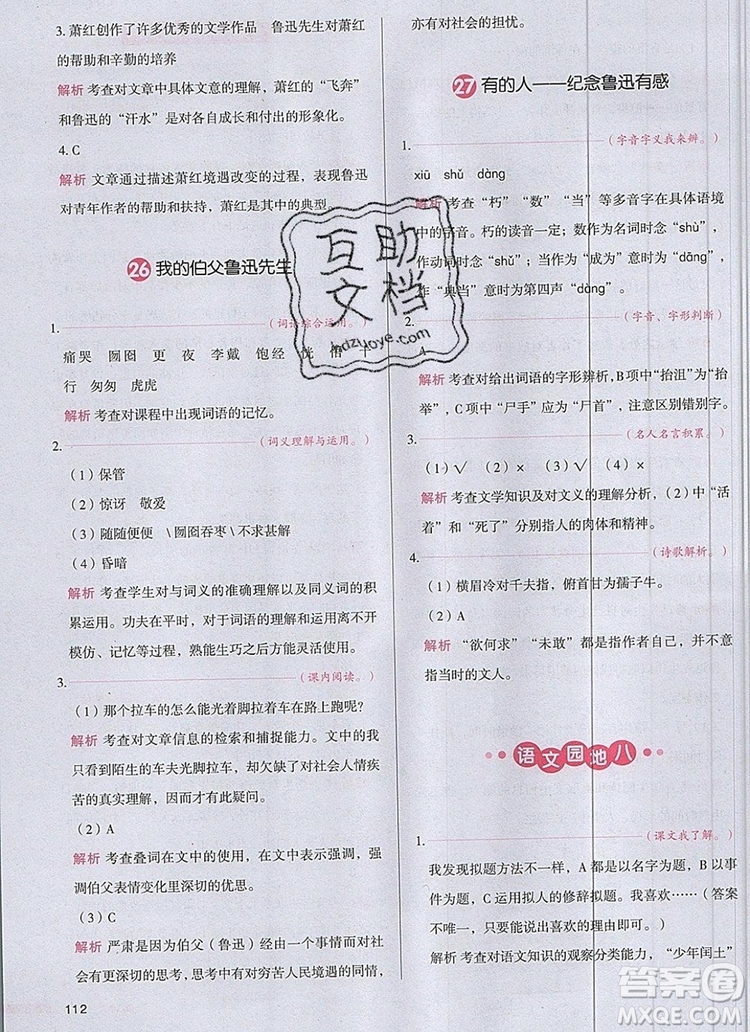 3. 萧红创作了许多优秀的文学作品　鲁迅先生对萧红
的帮助和辛勤的培养
解析 考查对文章中具体文意的理解，萧红的“飞奔”
和鲁迅的“汗水”是对各自成长和付出的形象化。
4. C
解析 文章通过描述萧红境遇改变的过程，表现鲁迅
对青年作者的帮助和扶持，萧红是其中的典型。
26 我的伯父鲁迅先生
1.
（词语综合运用。）
痛哭　囫囵　更　夜　李戴　饱经　恍　悟
行　匆匆　虎虎
解析 考查对课程中出现词语的记忆。
2.
（词义理解与运用。）
（1）保管
（2）惊讶　敬爱
（3）随随便便　\ 囫囵吞枣 \ 不求甚解
（4）昏暗
解析 考查学生对与词义的准确理解以及同义词的积
累运用。功夫在平时，对于词语的理解和运用离不开
模仿、记忆等过程，熟能生巧之后方能灵活运用。
3.
（课内阅读。）
（1）那个拉车的怎么能光着脚拉着车在路上跑呢？
解析 考查对文章信息的检索和捕捉能力。文中的我
只看到陌生的车夫光脚拉车，却欠缺了对社会人情疾
苦的真实理解，因此才有此疑问。
（2）A
解析 考查叠词在文中的使用，在文中表示强调，强
调伯父表情变化里深切的优思。
（3）C
解析 严肃是因为伯父（鲁迅）经由一个事情而对社
会有更深切的思考，不仅对贫苦人民境遇的同情，
112
亦有对社会的担忧。
27 有的人——纪念鲁迅有感
1.
（字音字义我来辨。）
xiǔ　shǔ　dàng
解析 考查“朽”“数”“当”等多音字在具体语境
中的字音。朽的读音一定；数作为名词时念“shù”，
作动词时念“shǔ”；当作“成为”意时为“dāng”，
作“典当”意时为第四声“dàng”。
2.
（字音、字形判断）
解析 考查对给出词语的字形辨析，B项中“抬沮”为“抬
举”，C项中“尸手”应为“尸首”，注意区别错字。
3.
（名人名言积累。）
（1）√　（2）×　（3）√　（4）×
解析 考查文学知识及对文义的理解分析，（2）中“活
着”和“死了”分别指人的肉体和精神。
4.
（诗歌解析。）
（1）横眉冷对千夫指，俯首甘为孺子牛。
（2）A
解析 “欲何求”“未敢”都是指作者自己，并不意
指当时的文人。
语文园地八
1.
（课文我了解。）
我发现拟题方法不一样，A是以名字为题，B以事
件为题，C运用拟人的修辞拟题。我喜欢……（答案
不唯一，只要能说出喜欢的理由即可）
解析 考查对语文知识的观察分类能力，“少年闰土”
互助
文档
hdzuoye.com
答案圈
MXQE.COM